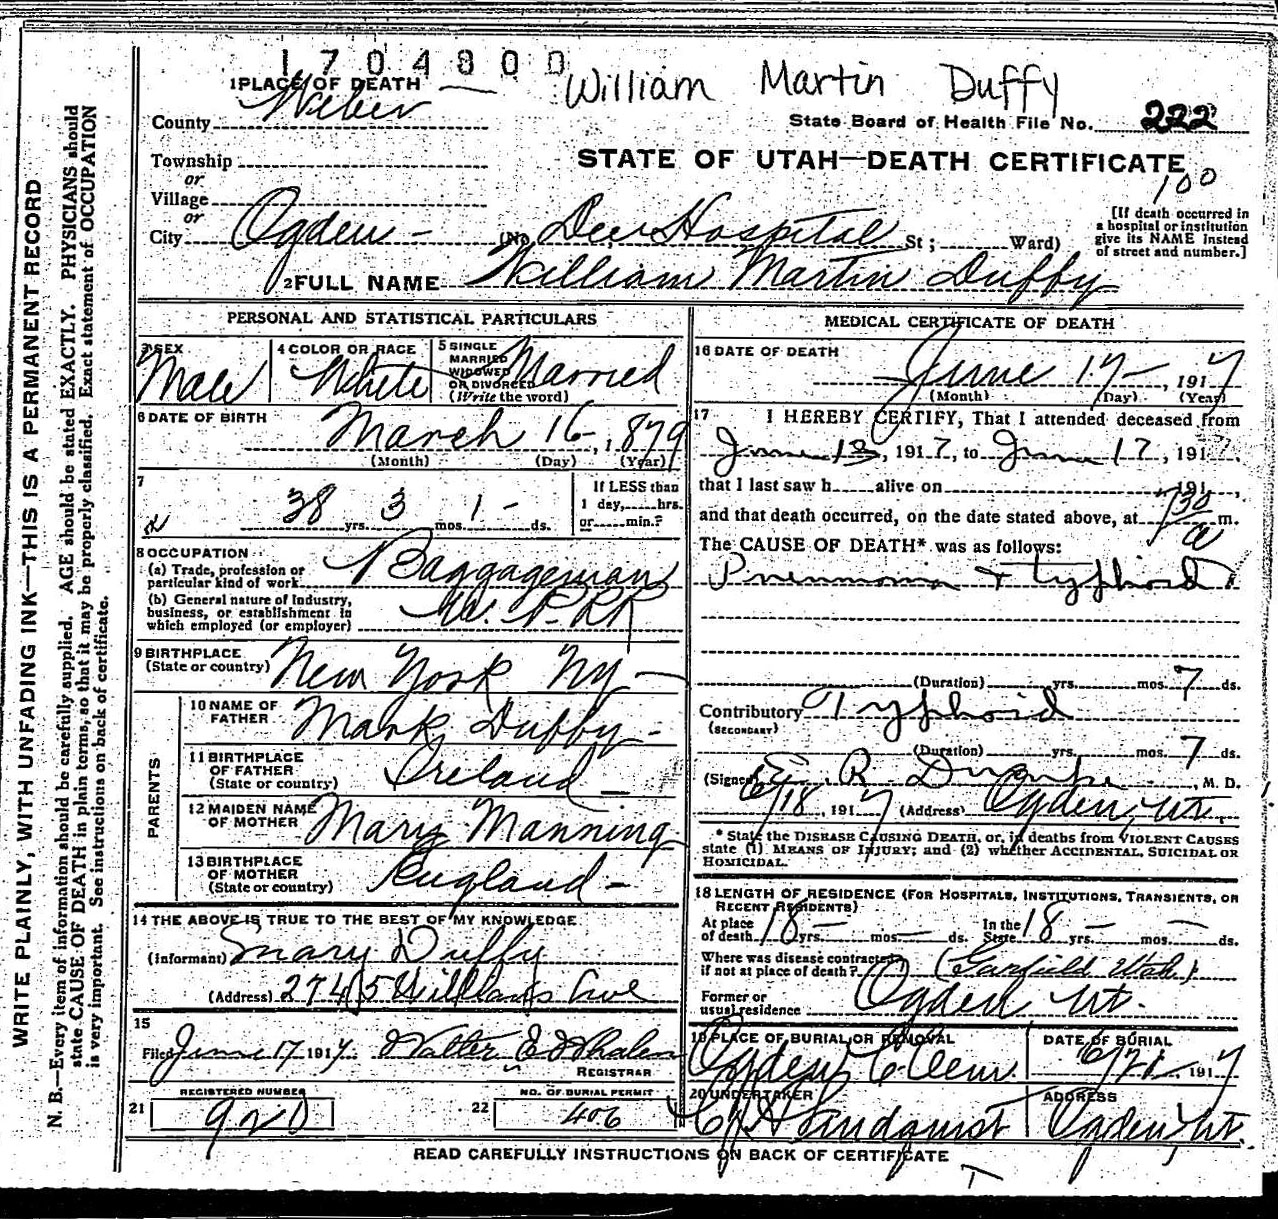 1704800
William Martin Duffy
1 PLACE OF DEATH
County Weber
State Board of Health File No. 222
Township
or
STATE OF UTAH—DEATH CERTIFICATE
100
Village
or
City Ogden - (No. Dee Hospital St; Ward)
[If death occurred in
a hospital or institution
give its NAME instead
of street and number.]
2 FULL NAME William Martin Duffy
WRITE PLAINLY, WITH UNFADING INK—THIS IS A PERMANENT RECORD
N. B.—Every item of information should be carefully supplied. AGE should be stated EXACTLY. PHYSICIANS should
state CAUSE OF DEATH in plain terms, so that it may be properly classified. Exact statement of OCCUPATION
is very important. See instructions on back of certificate.
PERSONAL AND STATISTICAL PARTICULARS
3 SEX
Male
4 COLOR OR RACE
White
5 SINGLE
MARRIED
WIDOWED
OR DIVORCED
(Write the word)
Married
6 DATE OF BIRTH
March 16-, 1879
(Month) (Day) (Year)
7
38 yrs. 3 mos. 1 - ds.
If LESS than
1 day, hrs.
or min.?
8 OCCUPATION
(a) Trade, profession or
particular kind of work Baggageman
(b) General nature of Industry,
business, or establishment in
which employed (or employer)
9 BIRTHPLACE
(State or country) New York NY -
PARENTS
10 NAME OF
FATHER Mark Duffy -
11 BIRTHPLACE
OF FATHER
(State or country) Ireland -
12 MAIDEN NAME
OF MOTHER Mary Manning
13 BIRTHPLACE
OF MOTHER
(State or country) England -
14 THE ABOVE IS TRUE TO THE BEST OF MY KNOWLEDGE
(Informant) Mary Duffy
(Address) 2745 Ave
15
Filed June 17 1917. Walter E Whalen
REGISTRAR
21 REGISTERED NUMBER
920
22 NO. OF BURIAL PERMIT
406
MEDICAL CERTIFICATE OF DEATH
16 DATE OF DEATH
June 17 -, 1917
(Month) (Day) (Year)
17 I HEREBY CERTIFY, That I attended deceased from
June 13, 1917, to June 17, 1917.
that I last saw h alive on 191 ,
and that death occurred, on the date stated above, at 730 a m.
The CAUSE OF DEATH* was as follows:
Pneumonia + typhoid
(Duration) yrs. mos. 7 ds.
Contributory Typhoid
(SECONDARY)
(Duration) yrs. mos. 7 ds.
(Signed) R. M. D.
6/18, 1917 (Address) Ogden, Ut.
* State the DISEASE CAUSING DEATH, or, in deaths from VIOLENT CAUSES
state (1) MEANS OF INJURY; and (2) whether ACCIDENTAL, SUICIDAL OR
HOMICIDAL.
18 LENGTH OF RESIDENCE (FOR HOSPITALS, INSTITUTIONS, TRANSIENTS, OR
RECENT RESIDENTS)
At place
of death 18 yrs. - mos. - ds. In the
State 18 yrs. - mos. - ds.
Where was disease contracted
if not at place of death? (Garfield Utah)
Former or
usual residence Ogden Ut.
19 PLACE OF BURIAL OR REMOVAL
Ogden C Cem.
DATE OF BURIAL
6/21 1917
20 UNDERTAKER
Lindquist
ADDRESS
Ogden, Ut.
READ CAREFULLY INSTRUCTIONS ON BACK OF CERTIFICATE